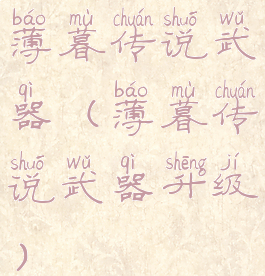 báo mù chuán shuō wǔ
薄暮传说武
qì báo mù chuán
器(薄暮传
shuō wǔ qì shēng jí
说武器升级
)